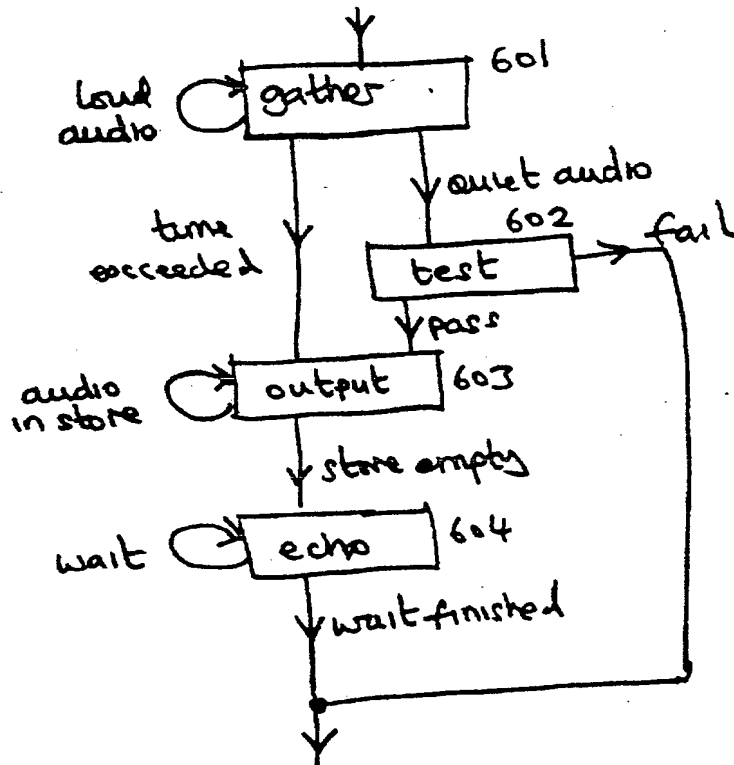 601
loud
audio
gather
quiet audio
time
exceeded
602
fail
test
pass
audio
in store
output
603
store empty
wait
echo
604
wait finished